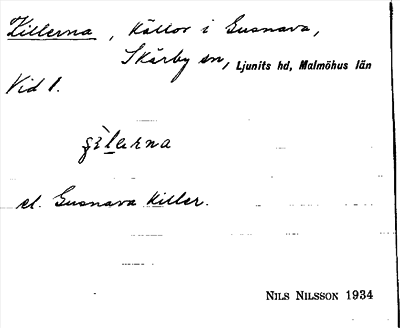 Killerna, Källor i Gusnava,
Skårby sn, Ljunits hd, Malmöhus län
Vid 1.
el. Gusnava Killer.
NILS NILSSON 1934